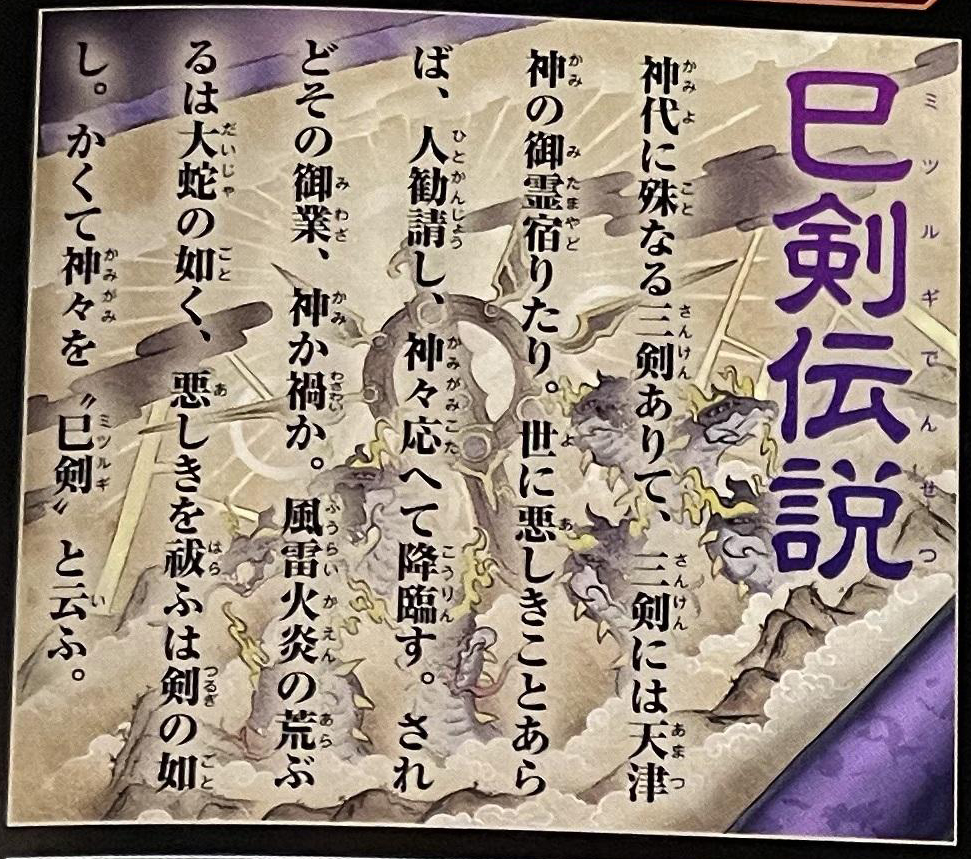 巳剣伝説
ミツルギでんせつ
神代に殊なる三剣ありて、三剣には天津
神の御霊宿りたり。世に悪しきことあら
ば、人勧請し、神々応へて降臨す。され
どその御業、神か禍か。風雷火炎の荒ぶ
るは大蛇の如く、悪しきを祓ふは剣の如
し。かくて神々を〝巳剣〟と云ふ。